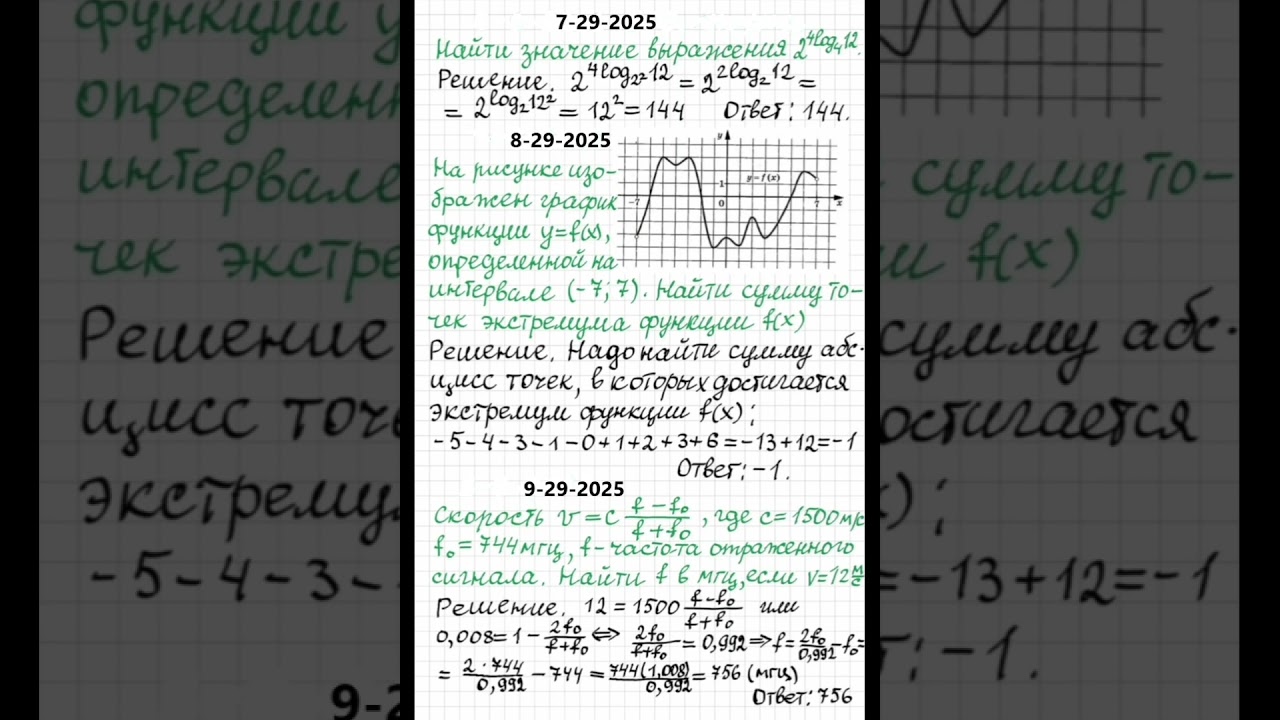 7-29-2025
Найти значение выражения 2^4log₄12.
Решение. 2^4log₂²12 = 2^2log₂12 =
= 2^log₂12² = 12² = 144 Ответ: 144.
8-29-2025
На рисунке изо-
бражен график
функции y=f(x),
определенной на
интервале (-7; 7). Найти сумму то-
чек экстремума функции f(x)
y
1
y=f(x)
-7 0 7 x
Решение. Надо найти сумму абс-
цисс точек, в которых достигается
экстремум функции f(x):
-5-4-3-1-0+1+2+3+6=-13+12=-1
Ответ: -1.
9-29-2025
Скорость v = c (f-f₀)/(f+f₀), где c=1500м/с
f₀=744мгц, f-частота отраженного
сигнала. Найти f в мгц, если v=12 м/с
Решение. 12 = 1500 (f-f₀)/(f+f₀) или
0,008 = 1 - 2f₀/(f+f₀) ⇔ 2f₀/(f+f₀) = 0,992 ⇒ f = 2f₀/0,992 - f₀ =
= 2·744/0,992 - 744 = 744(1,008)/0,992 = 756 (мгц)
Ответ: 756
функции y
определенн
интервале
сумму то-
чек экстре
ии f(x)
Решение
сумму абс-
цисс точ
остигается
экстрему
):
-5-4-3-
=-13+12=-1
: -1.
9-2